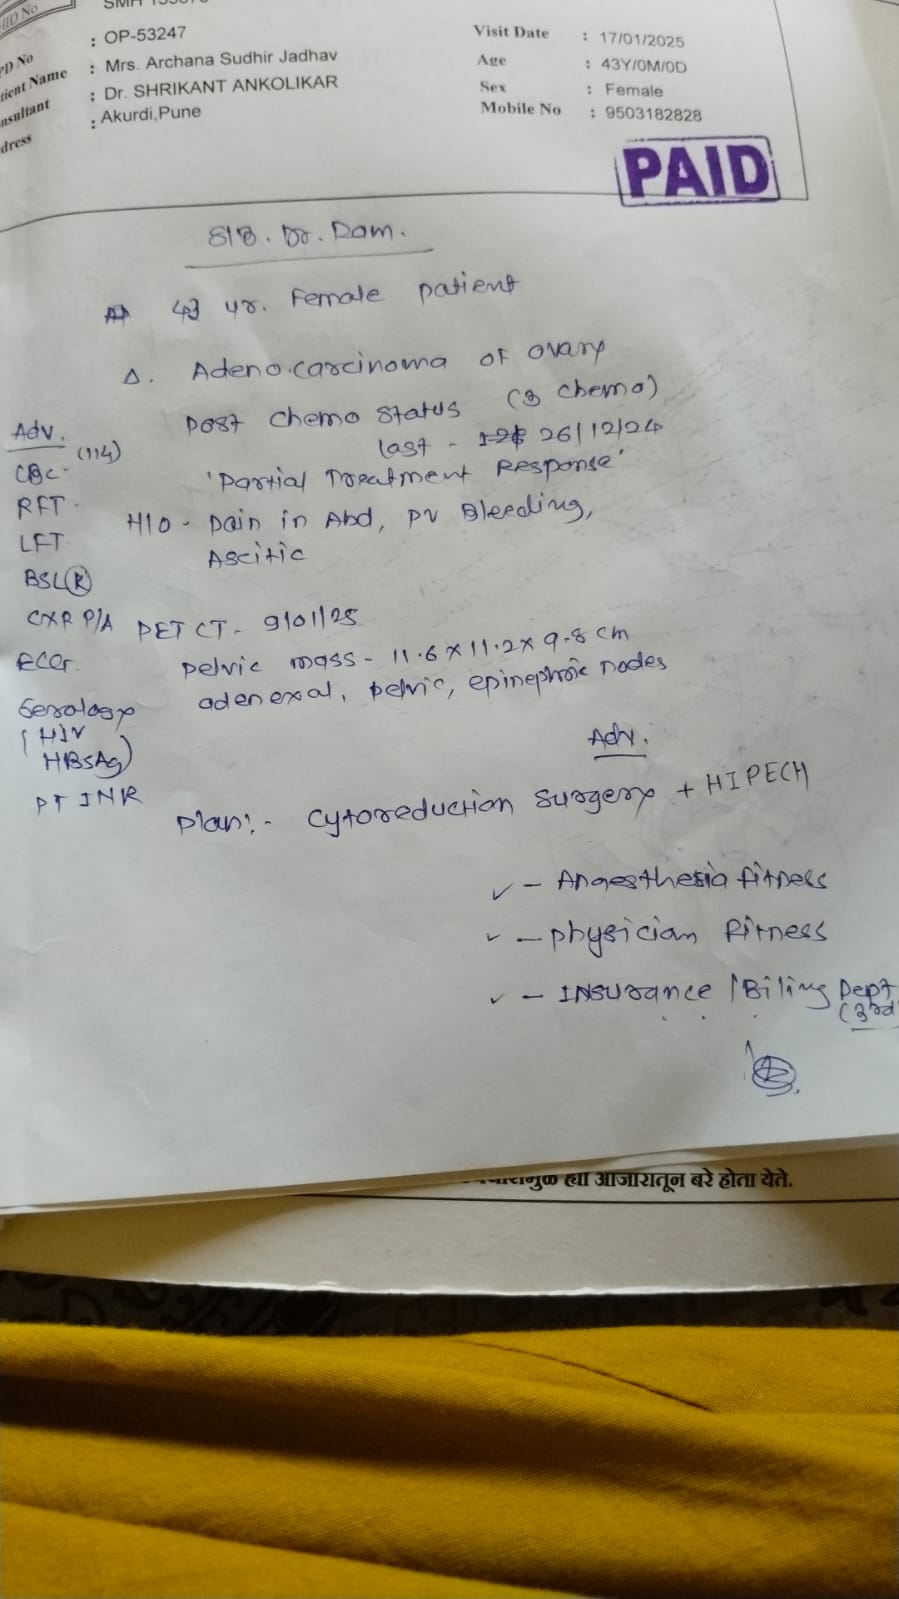 HID No
OPD No : OP-53247
Patient Name : Mrs. Archana Sudhir Jadhav
Consultant : Dr. SHRIKANT ANKOLIKAR
Address : Akurdi,Pune
Visit Date : 17/01/2025
Age : 43Y/0M/0D
Sex : Female
Mobile No : 9503182828
PAID
S/B. Dr. Ram.
43 yr. Female patient
Δ. Adenocarcinoma of ovary
Post Chemo Status (3 chemo)
last - 26/12/24
'Partial Treatment Response'
H/O - Pain in Abd, PV Bleeding,
Ascitic
PET CT - 9/01/25
Pelvic mass - 11.6 x 11.2 x 9.8 cm
adenexal, pelvic, epinephric nodes
Adv.
CBC - (114)
RFT.
LFT
BSL (R)
CXR P/A
ECG.
Serology
(HIV
HBsAg)
PT INR
Adv.
Plan:- Cytoreduction Surgery + HIPECH
✓ - Anaesthesia fitness
✓ - Physician Fitness
✓ - Insurance / Biling Dept
(3rd
ह्या आजारातून बरे होता येते.